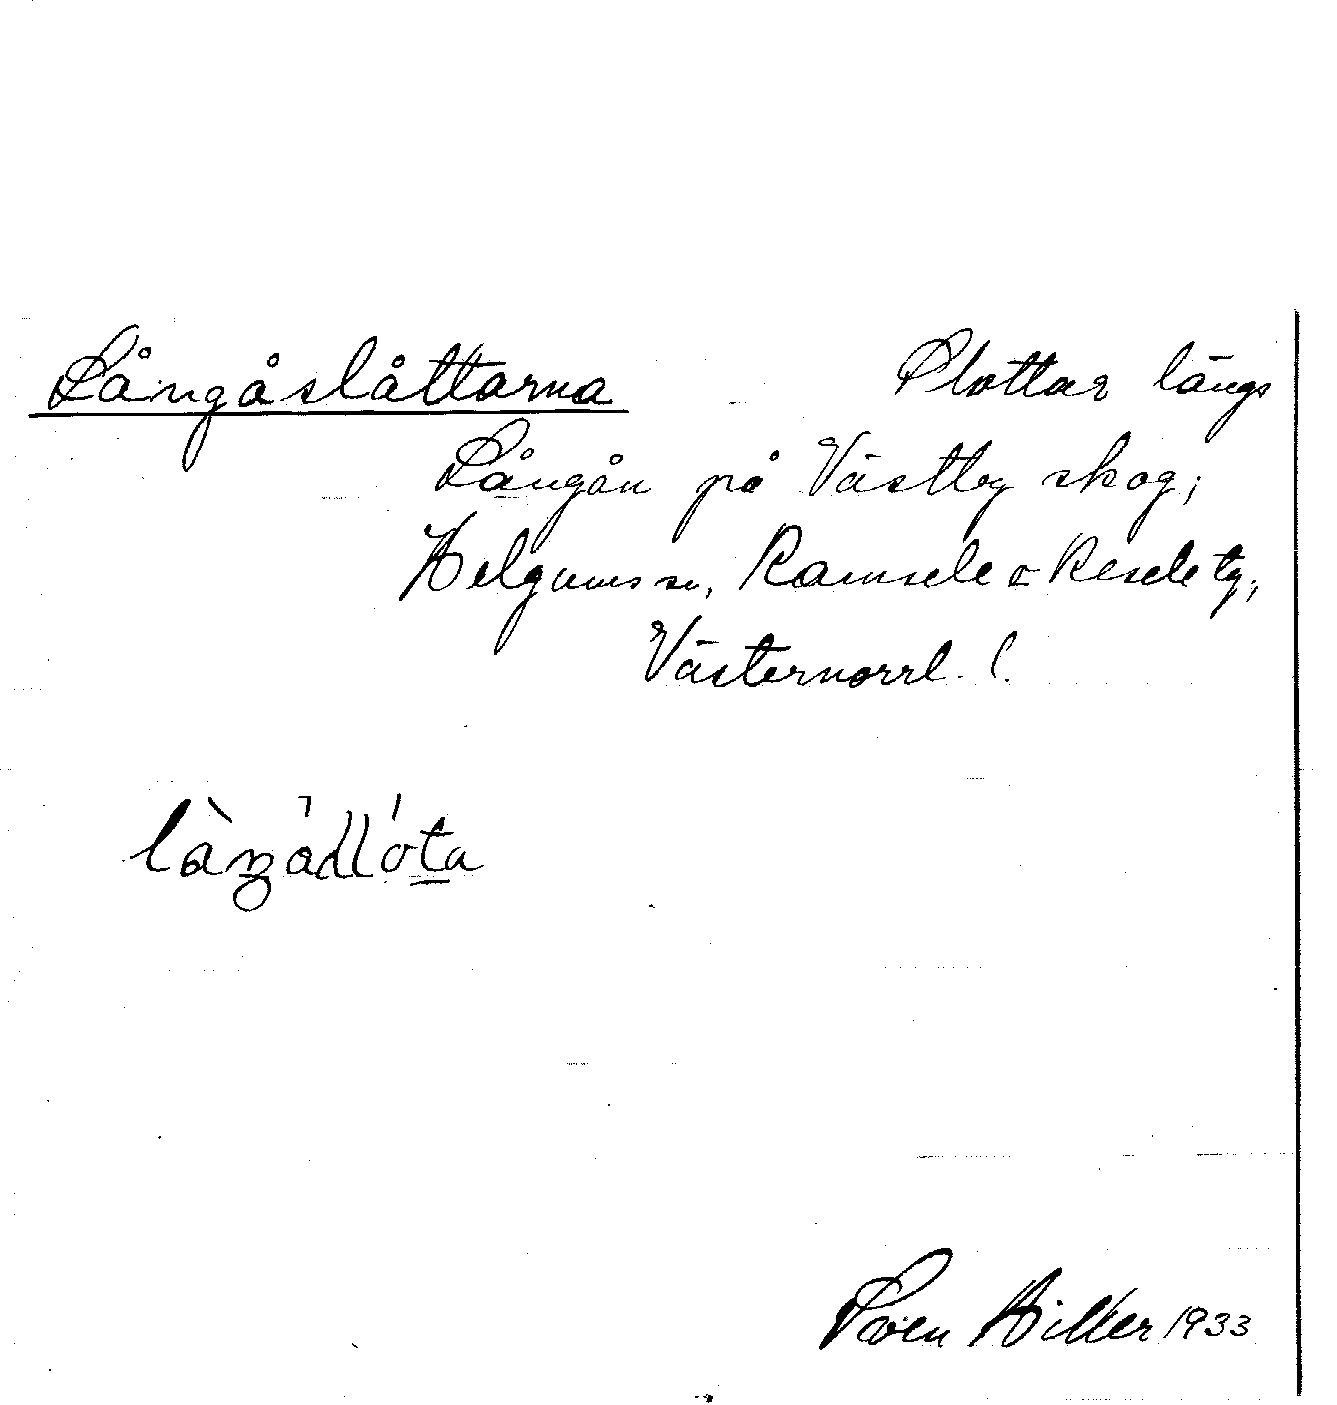 Långåslåttarna Slottar längs
Långån på Västby skog;
Helgums sn, Ramsele o Resele tg,
Västernorrl. l.
Sven Hiller 1933